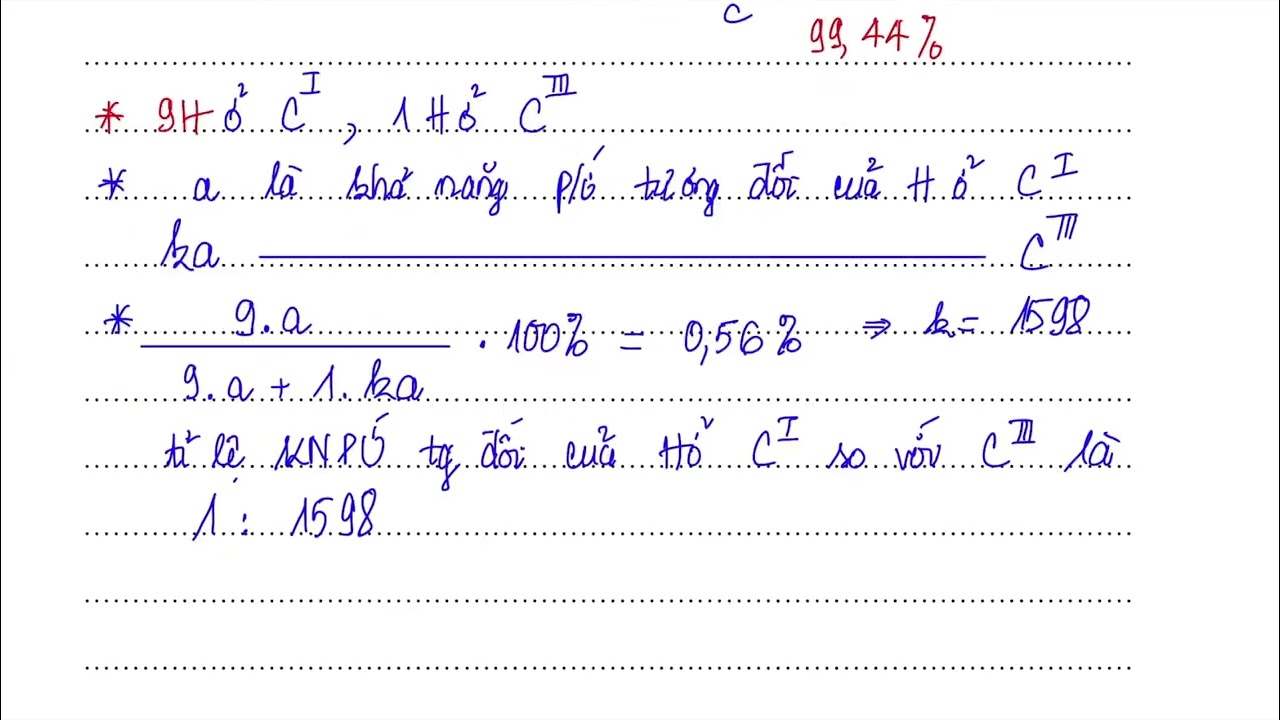 C
99,44%
* 9H ở C^I, 1H ở C^III
* a là khả năng p/ứ tương đối của H ở C^I
ka ——— C^III
* 9.a / (9.a + 1.ka) . 100% = 0,56% ⇒ k = 1598
tỉ lệ KNPƯ tg đối của H ở C^I so với C^III là
1 : 1598